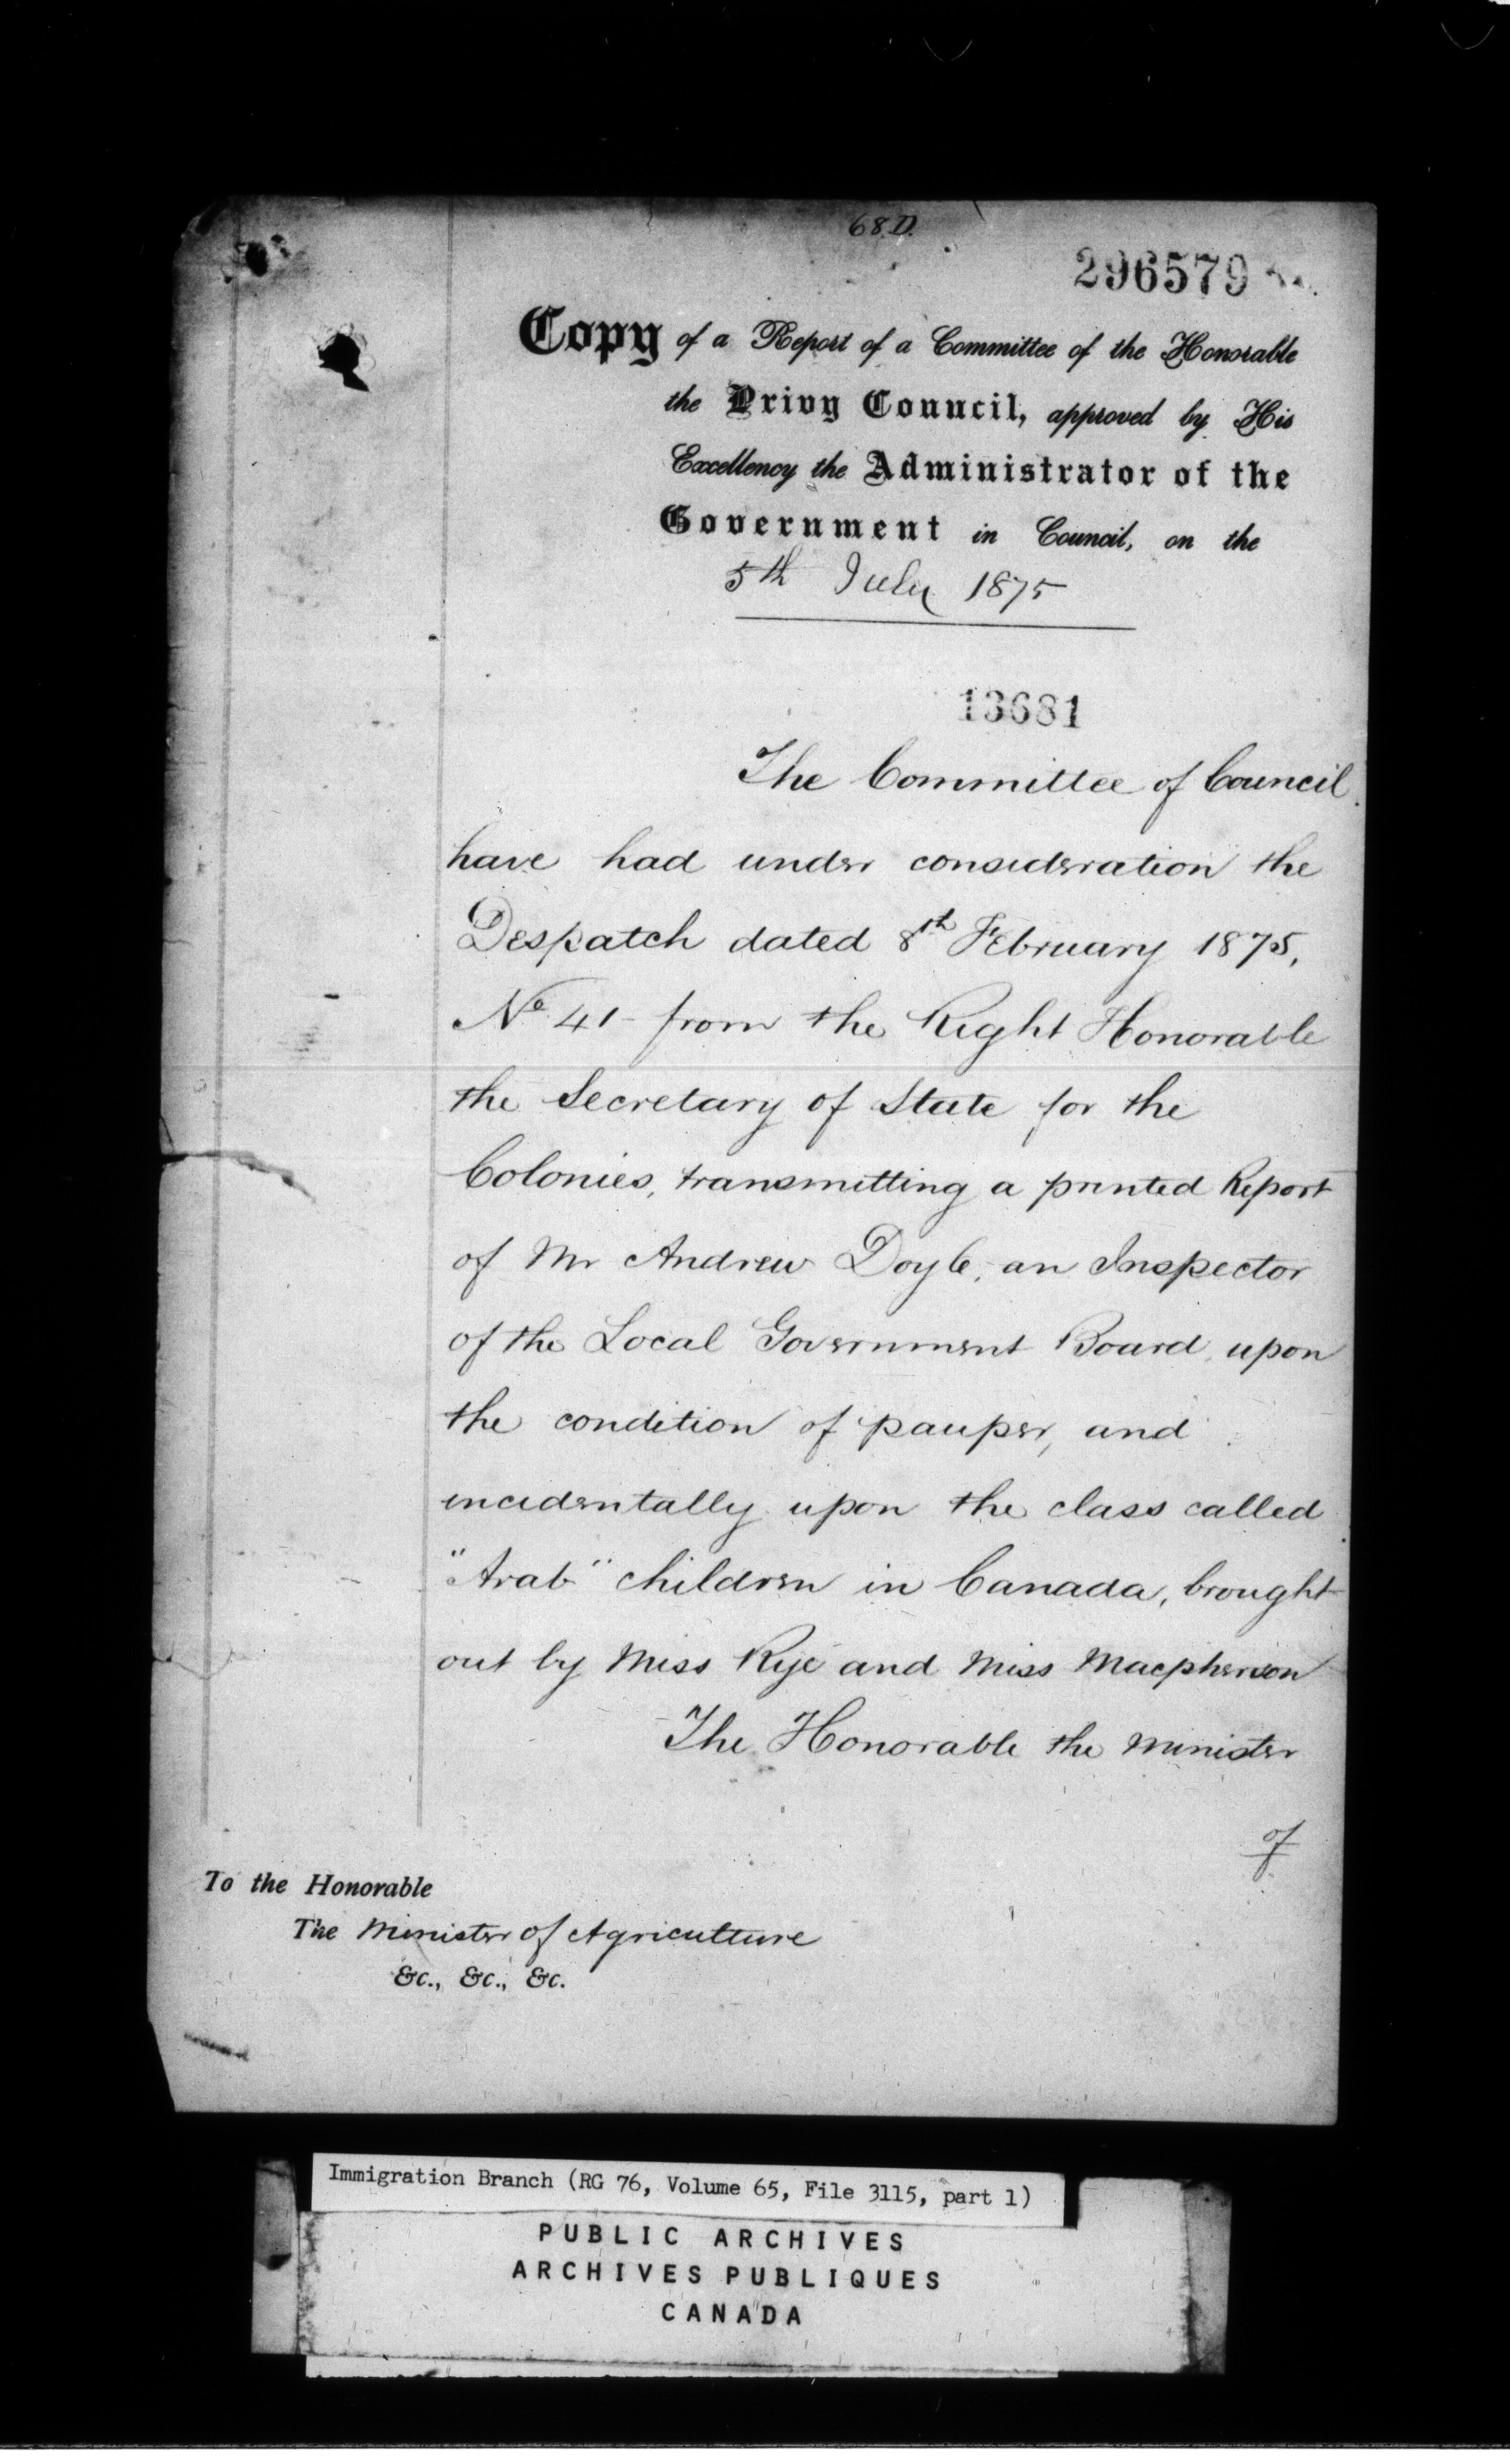 68.D.
296579
Copy of a Report of a Committee of the Honorable
the Privy Council, approved by His
Excellency the Administrator of the
Government in Council, on the
5th July 1875
13681
The Committee of Council
have had under consideration the
Despatch dated 8th February 1875,
No 41 - from the Right Honorable
the Secretary of State for the
Colonies, transmitting a printed Report
of Mr Andrew Doyle, an Inspector
of the Local Government Board, upon
the condition of pauper, and
incidentally upon the class called
"Arab" children in Canada, brought
out by Miss Rye and Miss Macpherson
The Honorable the Minister
of
To the Honorable
The Minister of Agriculture
&c., &c., &c.
Immigration Branch (RG 76, Volume 65, File 3115, part 1)
PUBLIC ARCHIVES
ARCHIVES PUBLIQUES
CANADA